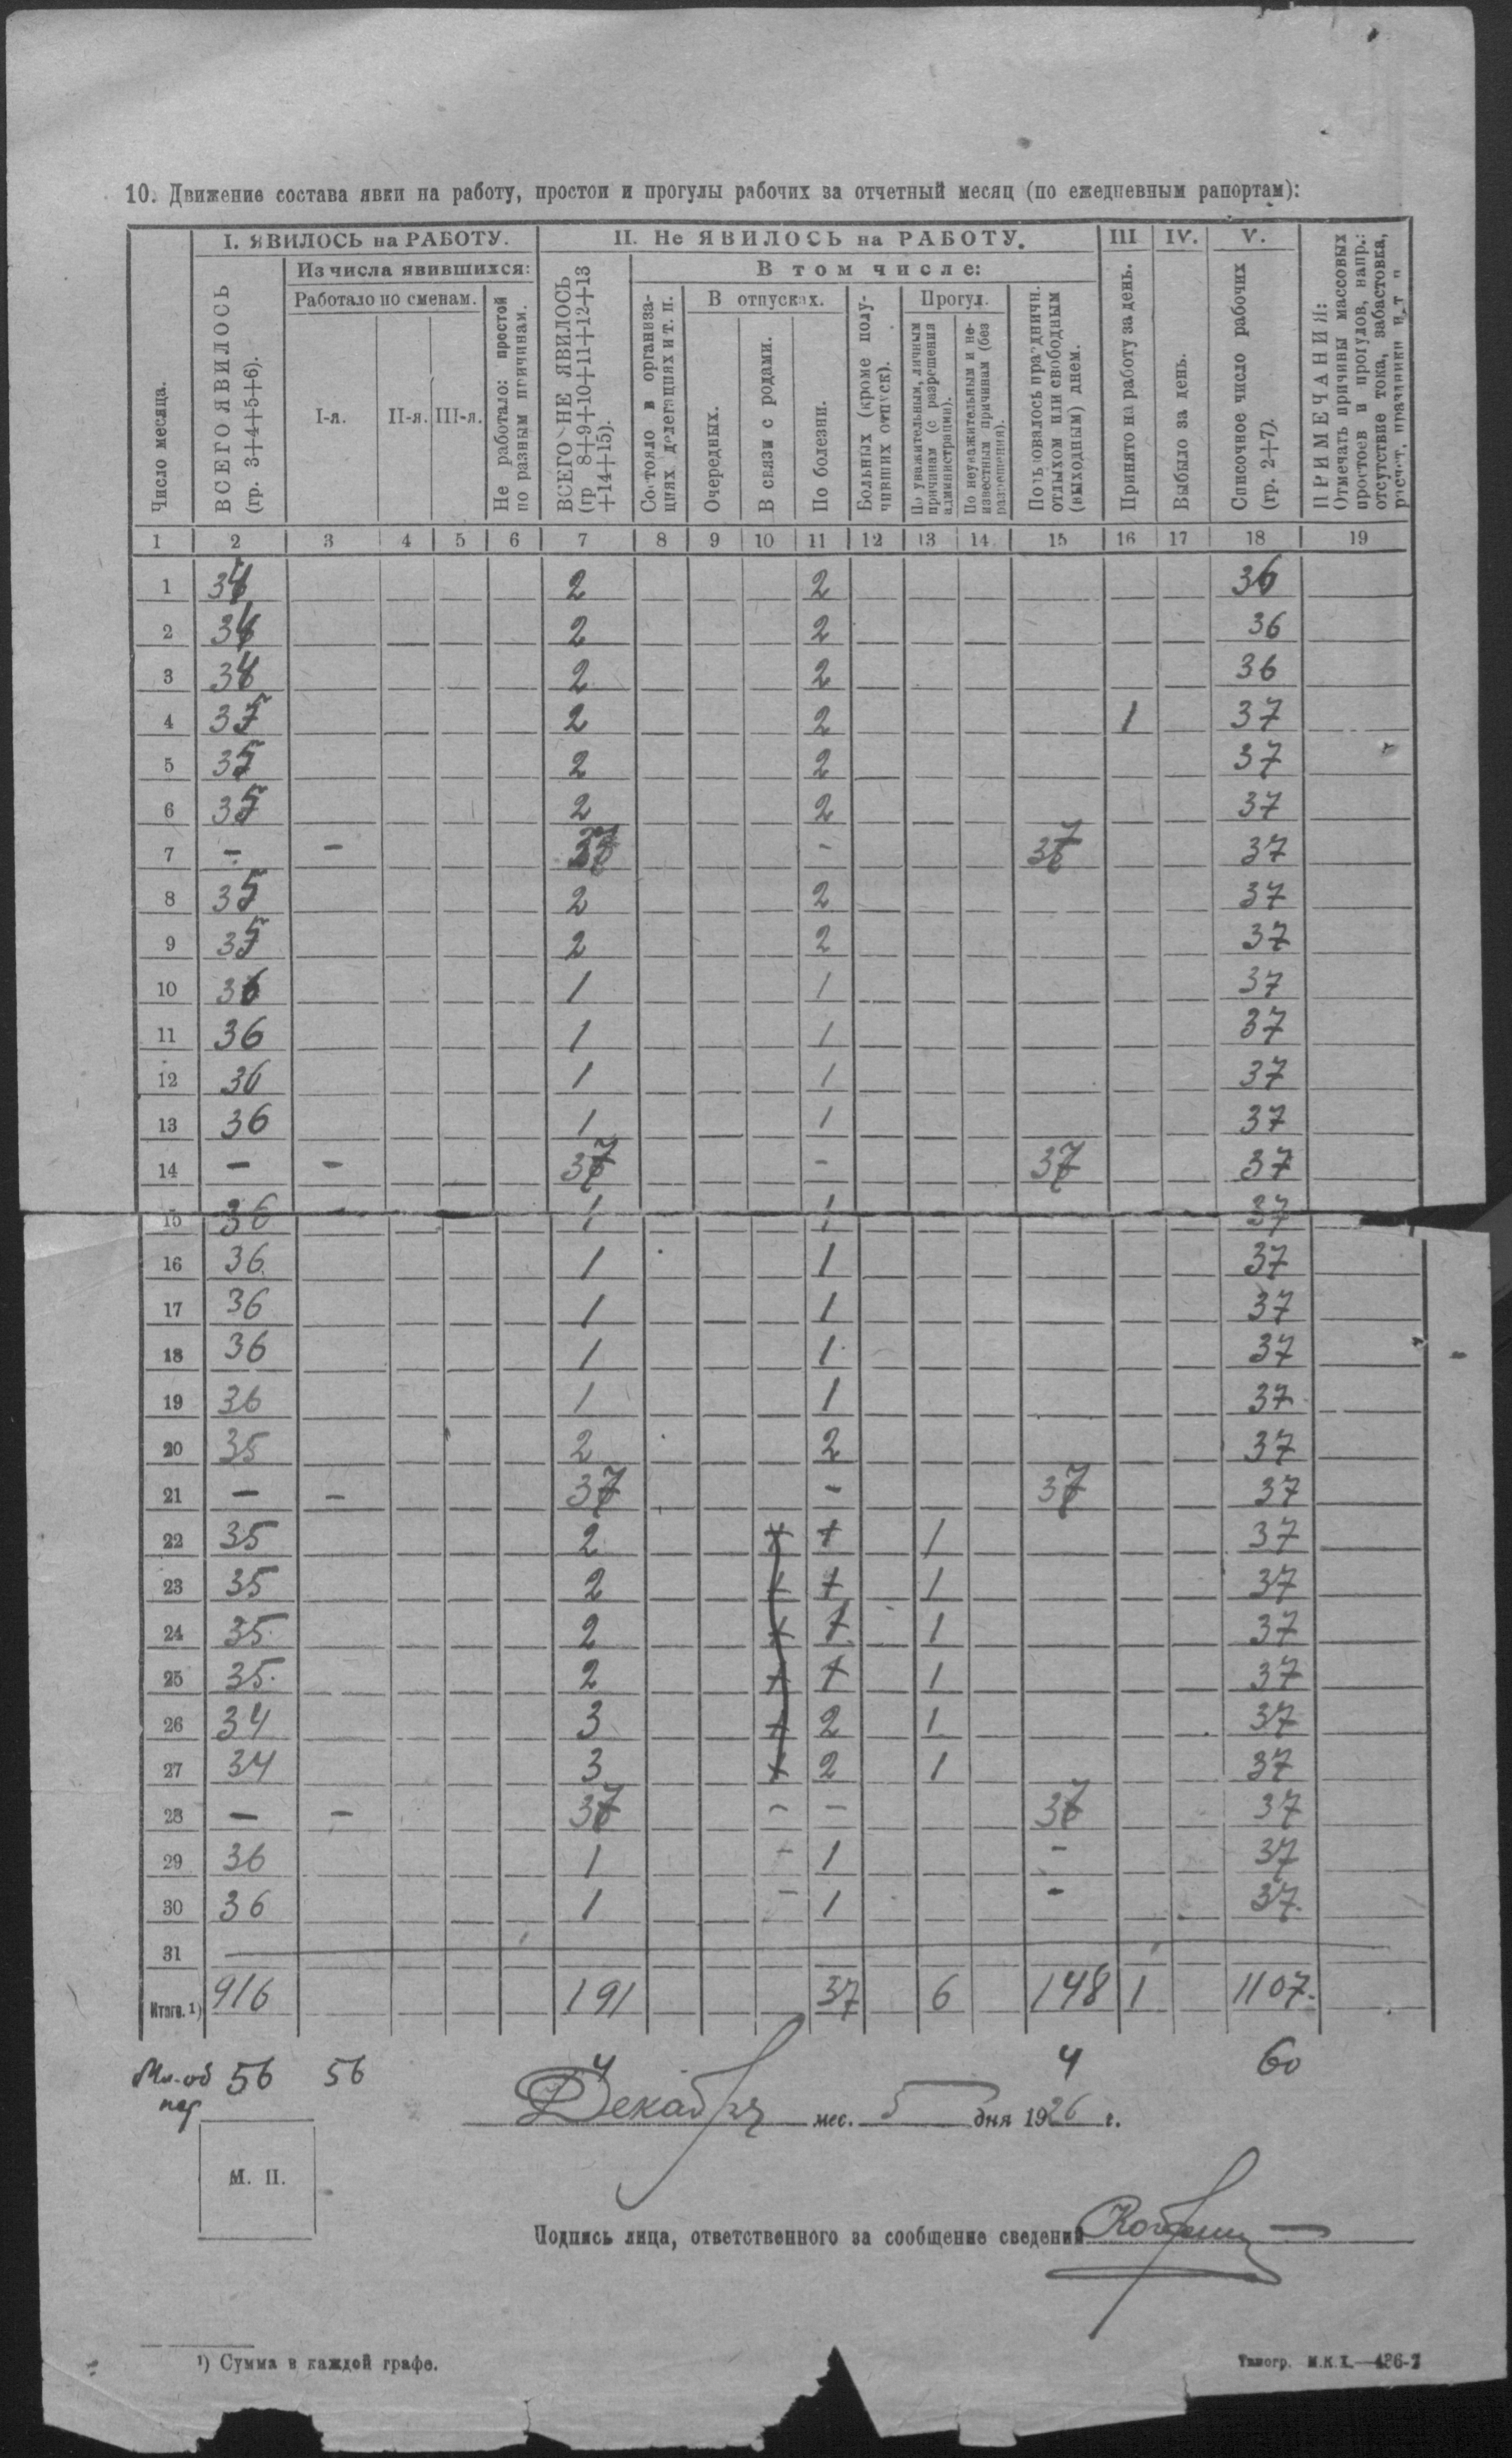 10. Движение состава явки на работу, простои и прогулы рабочих за отчетный месяц (по ежедневным рапортам):
I. ЯВИЛОСЬ на РАБОТУ. II. Не ЯВИЛОСЬ на РАБОТУ. III IV. V.
Из числа явившихся: В том числе:
Работало по сменам. В отпусках. Прогул.
Число месяца.
ВСЕГО ЯВИЛОСЬ
(гр. 3+4+5+6).
I-я. II-я. III-я.
Не работало: простой
по разным причинам.
ВСЕГО НЕ ЯВИЛОСЬ
(гр 8+9+10+11+12+13
+14+15).
Состояло в организа-
циях делегациях и т. п.
Очередных.
В связи с родами.
По болезни.
Больных (кроме полу-
чивших отпуск).
По уважительным, личным
причинам (с разрешения
администрации).
По неуважительным и не-
известным причинам (без
разрешения).
Пользовалось праздничн.
отдыхом или свободным
(выходным) днем.
Принято на работу за день.
Выбыло за день.
Списочное число рабочих
(гр. 2+7).
ПРИМЕЧАНИЯ:
Отмечать причины массовых
простоев и прогулов, напр.:
отсутствие тока, забастовка,
расчет, праздники и т п
1 2 3 4 5 6 7 8 9 10 11 12 13 14 15 16 17 18 19
1 34 2 2 36
2 34 2 2 36
3 34 2 2 36
4 35 2 2 1 37
5 35 2 2 37
6 35 2 2 37
7 - - 37 - 37 37
8 35 2 2 37
9 35 2 2 37
10 36 1 1 37
11 36 1 1 37
12 36 1 1 37
13 36 1 1 37
14 - - 37 - 37 37
15 36 1 1 37
16 36 1 1 37
17 36 1 1 37
18 36 1 1 37
19 36 1 1 37
20 35 2 2 37
21 - - 37 - 37 37
22 35 2 1 1 37
23 35 2 1 1 37
24 35 2 1 1 37
25 35 2 1 1 37
26 34 3 2 1 37
27 34 3 2 1 37
28 - - 37 - - 37 37
29 36 1 - 1 - 37
30 36 1 - 1 - 37
31
Итого. 1) 916 191 37 6 148 1 1107.
56 56 4 4 60
Декабря мес. 5 дня 1926 г.
М. П.
Подпись лица, ответственного за сообщение сведений
1) Сумма в каждой графе.
Типогр. М.К.Х.—436-7